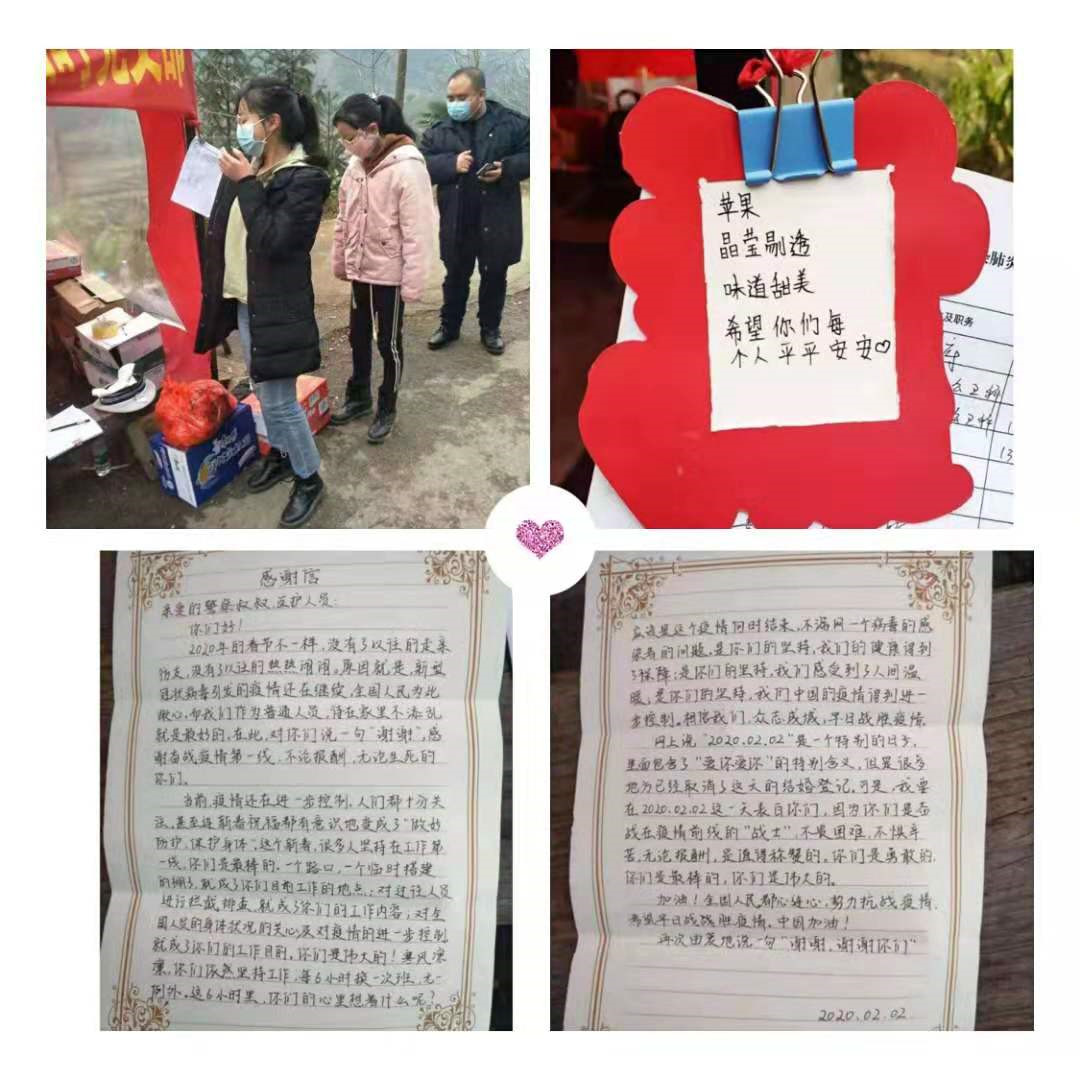 苹果
晶莹剔透
味道甜美
希望你们每
个人平平安安♡
肺炎
及职务
感谢信
亲爱的警察叔叔、医护人员:
你们好!
2020年的春节不一样,没有了以往的走亲
访友,没有了以往的热热闹闹。原因就是,新型
冠状病毒引发的疫情还在继续,全国人民为此
揪心,而我们作为普通人员,待在家里不添乱
就是最好的,在此,对你们说一句“谢谢”,感
谢奋战疫情第一线,不论报酬,无论生死的
你们。
当前,疫情还在进一步控制,人们都十分关
注,甚至连新春祝福都有意识地变成了“做好
防护,保护身体”,这个新春,很多人坚持在工作第
一线,你们是最棒的,一个路口,一个临时搭建
的棚子,就成了你们目前工作的地点;对过往人员
进行拦截排查,就成了你们的工作内容;对全
国人民的身体状况的关心及对疫情的进一步控制
就成了你们的工作目的。你们是伟大的!寒风凛
凛,你们依然坚持工作,每6小时换一次班,无一
例外。这6小时里,你们的心里想着什么呢?
应该是这个疫情何时结束,不漏网一个病毒的感
染者的问题,是你们的坚持,我们的健康得到
了保障;是你们的坚持,我们感受到了人间温
暖,是你们的坚持,我们中国的疫情得到进一
步控制。相信我们,众志成城,早日战胜疫情。
网上说“2020.02.02”是一个特别的日子,
里面包含了“爱你爱你”的特别含义,但是很多
地方已经取消了这天的结婚登记,可是,我要
在2020.02.02这一天表白你们,因为你们是奋
战在疫情前线的“战士”,不畏困难,不惧辛
苦,无论报酬,是值得称赞的,你们是勇敢的,
你们是最棒的,你们是伟大的。
加油!全国人民都心连心,努力抗战疫情,
希望早日战战胜疫情,中国加油!
再次由衷地说一句“谢谢,谢谢你们”
2020.02.02